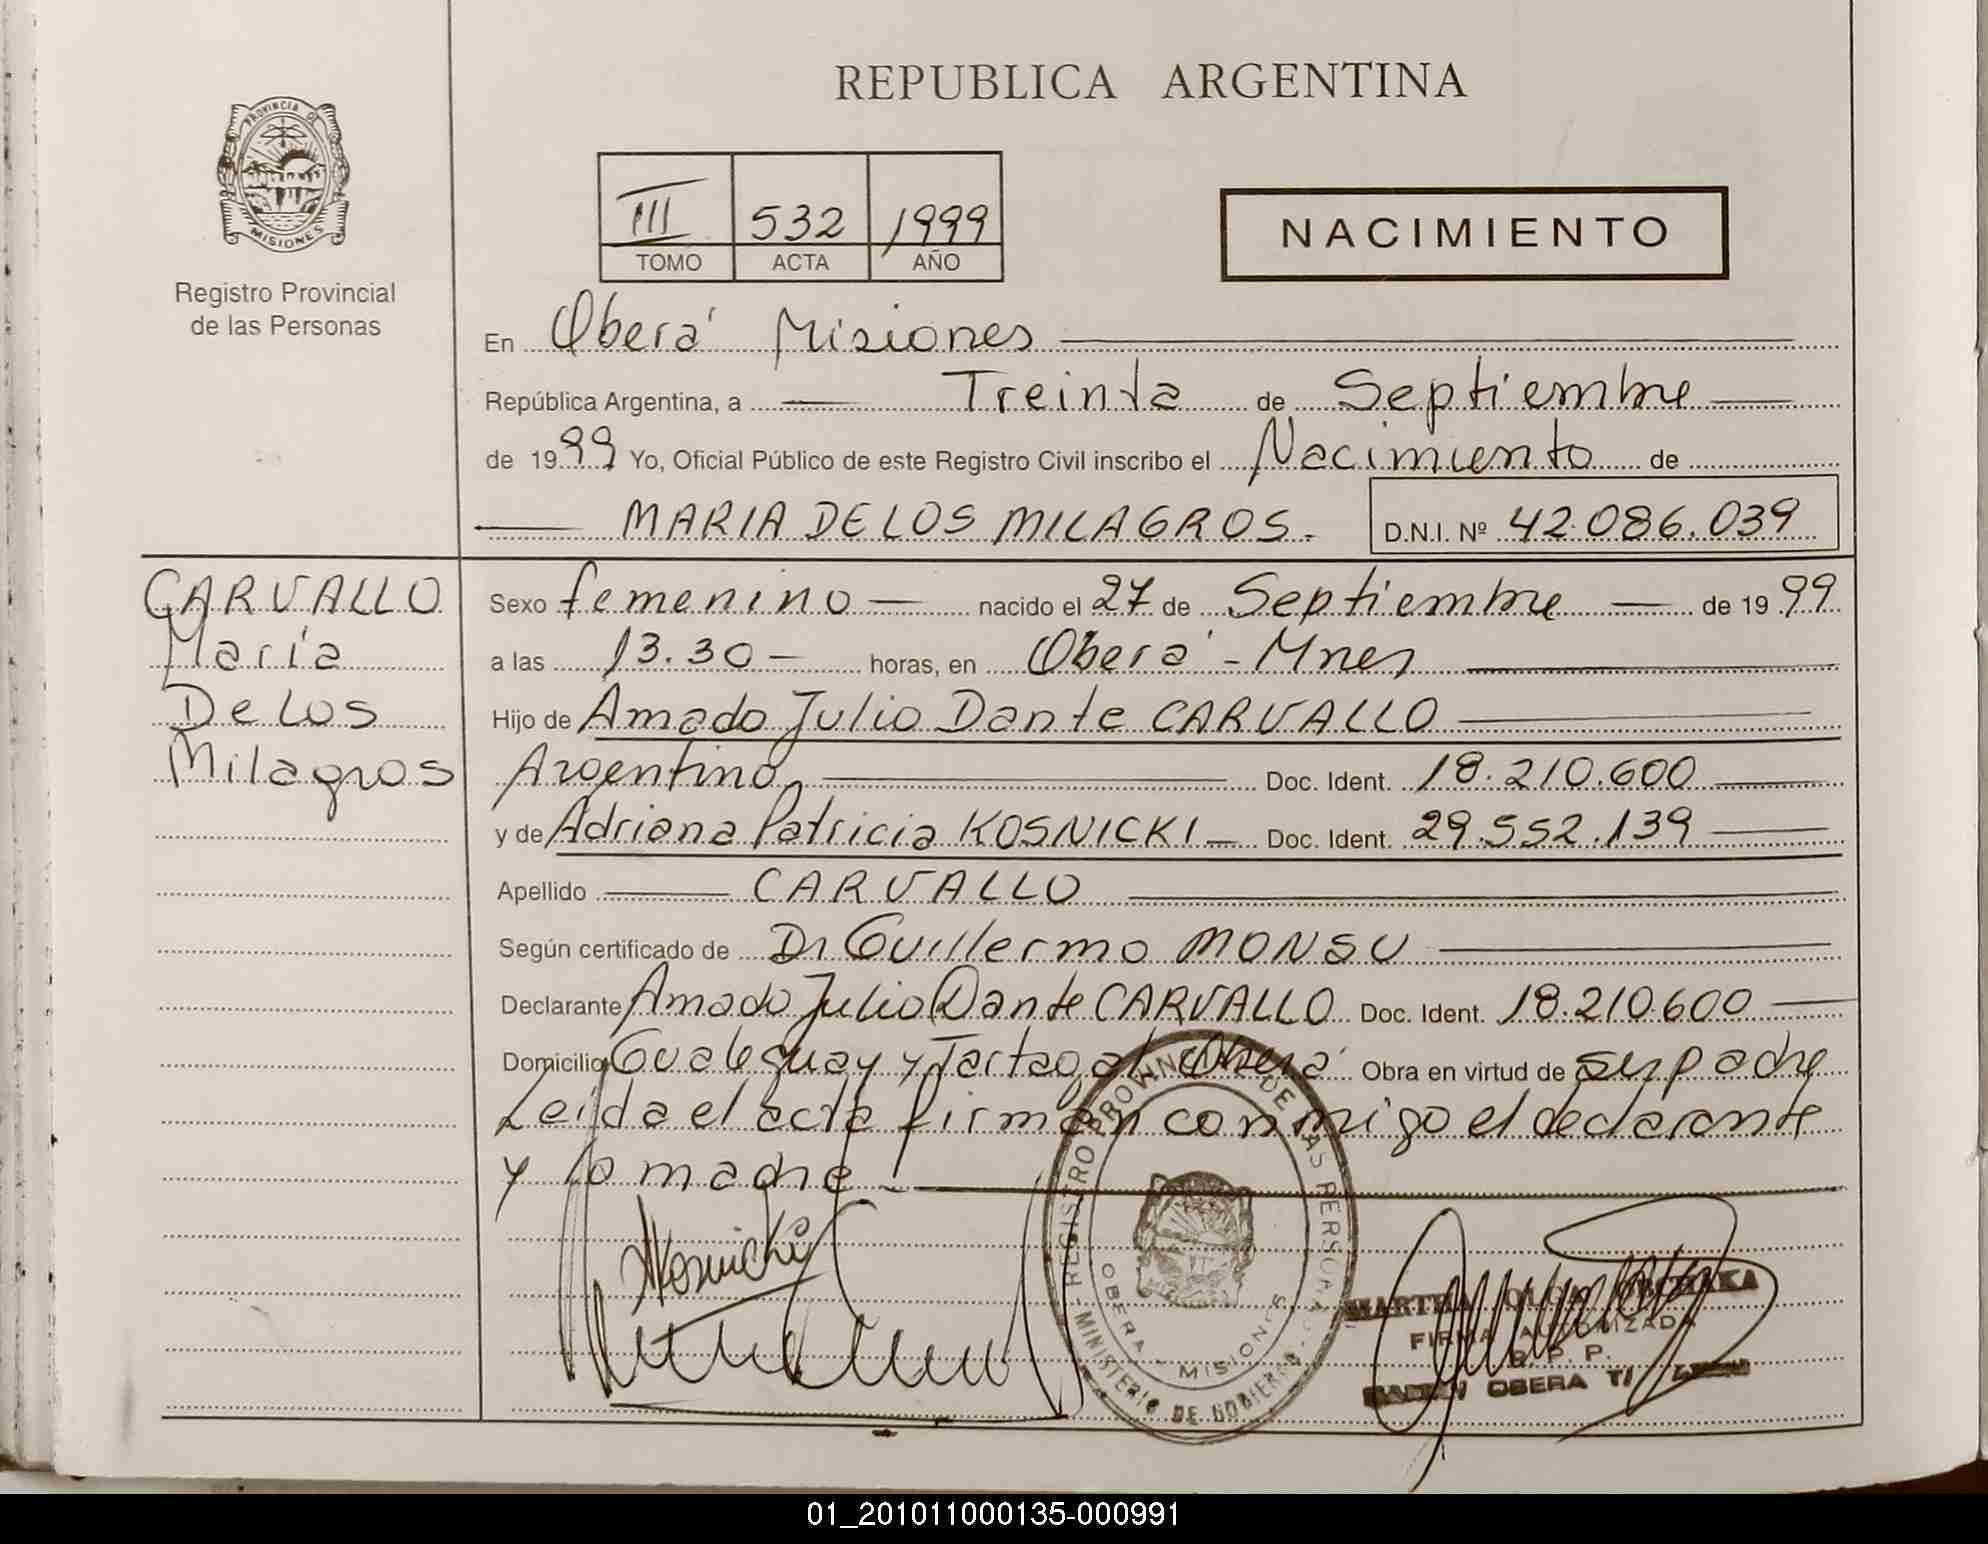 REPUBLICA ARGENTINA
PROVINCIA DE
MISIONES
Registro Provincial
de las Personas
III 532 1999
TOMO ACTA AÑO
NACIMIENTO
En Oberá Misiones
República Argentina, a Treinta de Septiembre
de 1999 Yo, Oficial Público de este Registro Civil inscribo el Nacimiento de
MARIA DE LOS MILAGROS. D.N.I. Nº 42.086.039
CARVALLO
María
De Los
Milagros
Sexo femenino nacido el 27 de Septiembre de 1999
a las 13.30 horas, en Oberá - Mnes
Hijo de Amado Julio Dante CARVALLO
Argentino Doc. Ident. 18.210.600
y de Adriana Patricia KOSNICKI Doc. Ident. 29.552.139
Apellido CARVALLO
Según certificado de Dr Guillermo MONSU
Declarante Amado Julio Dante CARVALLO Doc. Ident. 18.210.600
Domicilio Gualeguay y Tartagal Oberá Obra en virtud de ser padre
Leída el acta firman conmigo el declarante
y la madre
AKosnicki
REGISTRO PROVINCIAL DE LAS PERSONAS
OBERA - MISIONES
MINISTERIO DE GOBIERNO
MARTHA OLGA
FIRMA AUTORIZADA
R. P. P.
OBERA
01_201011000135-000991